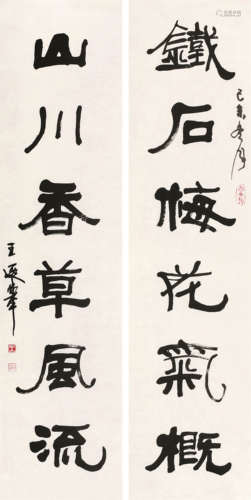 鐵石梅花氣概
山川香草風流
己未冬月
王遐舉